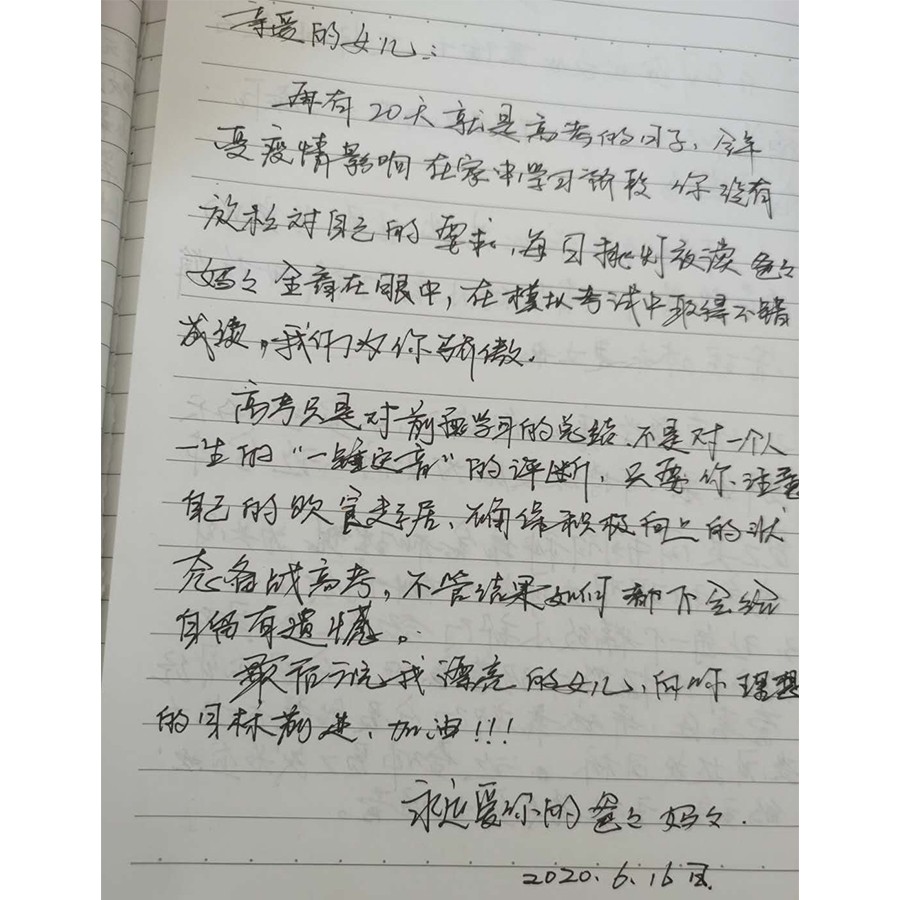 亲爱的女儿：
再有20天就是高考的日子，今年
受疫情影响在家中学习 你没有
放松对自己的要求，每日挑灯夜读 爸々
妈々全看在眼中，在模拟考试中取得不错
成绩，我们为你骄傲.
高考只是对前面学习的总结、不是对一个人
一生的“一锤定音”的评断，只要你注重
自己的饮食起居、确保积极向上的状
态备战高考，不管结果如何都不会给
自留有遗憾。
最后 我漂亮的女儿，向你理想
的目标前进、加油!!!
永远爱你的爸々妈々.
2020.6.16日.